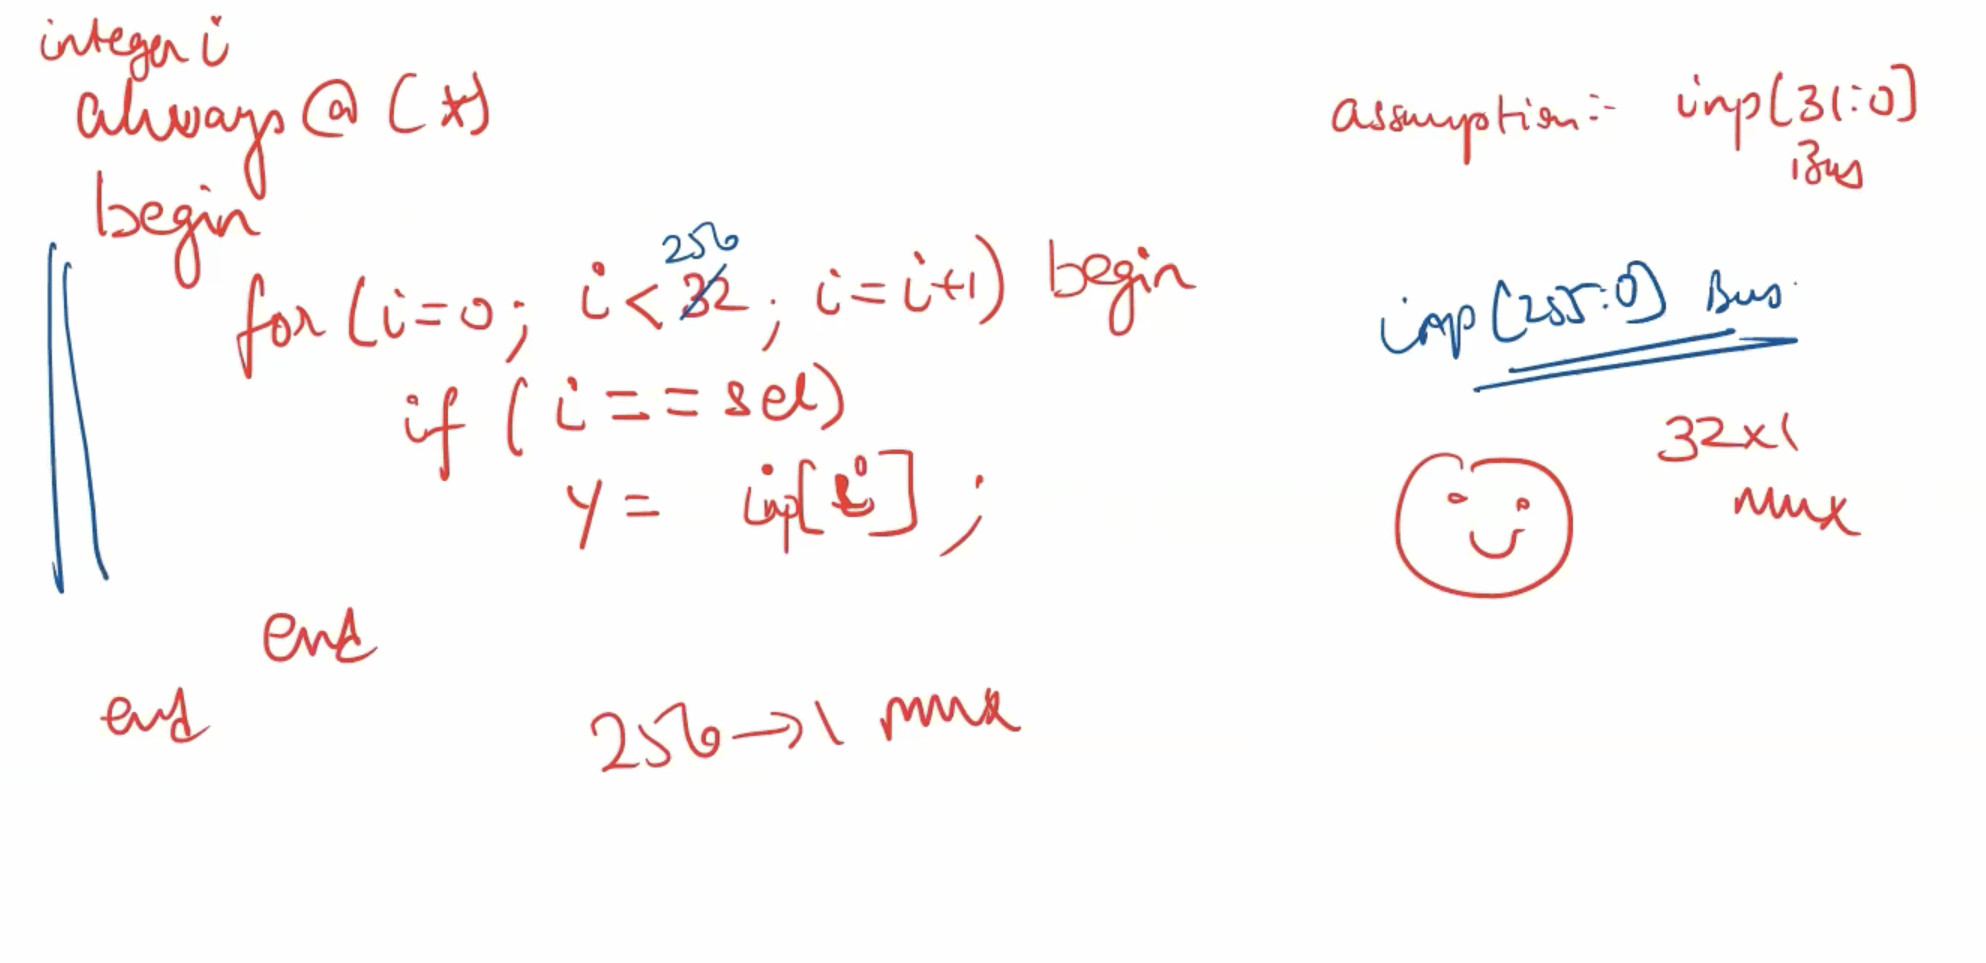 integer i
always @ (*)
begin
for (i=0; i<32 256; i=i+1) begin
if (i==sel)
y = inp[i];
end
end
256→1 mux
assumption:- inp[31:0]
Bus
inp[255:0] Bus
32x1
mux